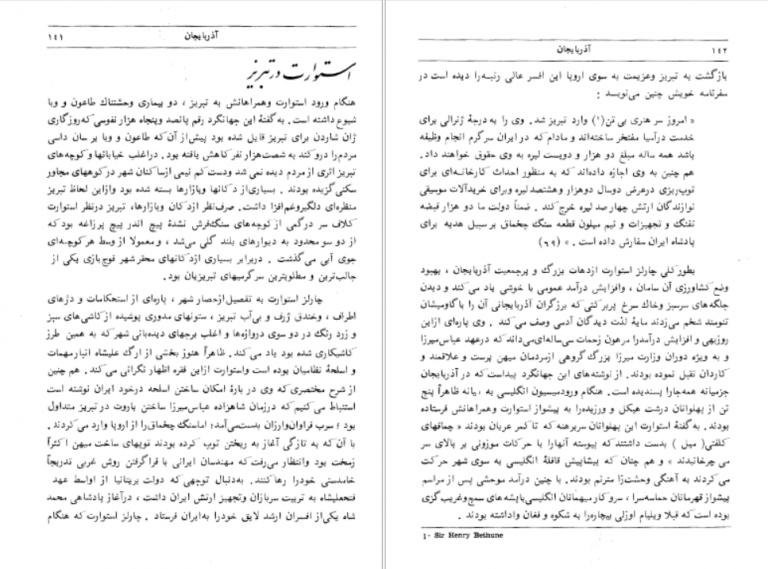 آذربایجان
۱۴۱
استوارت در تبریز
هنگام ورود استوارت وهمراهانش به تبریز ، دو بیماری وحشتناك طاعون و وبا
شیوع داشته است . به گفتهٔ این جهانگرد رقم پانصد وپنجاه هزار نفوسی که روزگاری
ژان شاردن برای تبریز قایل شده بود پیش از آن که طاعون و وبا بر سان داسی
مردم را درو کند به شصت هزار نفر کاهش یافته بود . در اغلب خیابانها و کوچه های
تبریز اثری از مردم دیده نمی شد ودست کم نیمی ازساکنان شهر در کوههای مجاور
سکنی گزیده بودند . بسیاری از دکانها وبازارها بسته شده بود وازاین لحاظ تبریز
منظره‌ای دلگیر وغم‌افزا داشت . صرف‌نظر ازدکان وبازارها، تبریز درنظر استوارت
کلاف سر درگمی از کوچه‌های سنگ‌فرش نشدهٔ پیچ اندر پیچ پرزاغه بود که
از دو سو محدود به دیوارهای بلند گلی می‌شد ، و معمولا از وسط هر کوچه‌ای
جوی آبی می‌گذشت . دربرابر بسیاری ازدکانهای محقر شهر قوچ‌بازی یکی از
جالب‌ترین و مطلوبترین سرگرمیهای تبریزیان بود .
چارلز استوارت به تفصیل ازحصار شهر ، پاره‌ای از استحکامات و دژهای
اطراف ، وخندق ژرف و بی‌آب تبریز ، ستونهای مدوری پوشیده از کاشی‌های سبز
و زرد رنگ در دو سوی دروازه‌ها و اغلب برجهای دیده‌بانی شهر که به همین طرز
کاشیکاری شده بود یاد می‌کند . ظاهراً هنوز بخشی از ارگ علیشاه انبار مهمات
و اسلحهٔ نظامیان بوده است واستوارت ازاین فقره اظهار نگرانی می‌کند . هم چنین
از شرح مختصری که وی در بارهٔ امکان ساختن اسلحه درخود ایران نوشته است
استنباط می‌کنیم که درزمان شاهزاده عباس‌میرزا ساختن باروت در تبریز متداول
بود ؛ سرب فراوان وارزان بدست می‌آمد؛ اماسنگ چخماق را از اروپا وارد می‌کردند .
با آن که به تازگی آغاز به ریختن توپ کرده بودند توپهای ساخت میهن اکثراً
زمخت بود وانتظار می‌رفت که مهندسان ایرانی با فراگرفتن روش غربی تدریجاً
خامدستی خودرا رها کنند . به‌دنبال توجهی که دولت بریتانیا از اواسط عهد
فتحعلیشاه به تربیت سربازان وتجهیز ارتش ایران داشت ، درآغاز پادشاهی محمد
شاه یکی از افسران ارشد لایق خودرا به ایران فرستاد . چارلز استوارت که هنگام
۱۴۲
آذربایجان
بازگشت به تبریز وعزیمت به سوی اروپا این افسر عالی رتبه را دیده است در
سفرنامه خویش چنین می‌نویسد :
« امروز سر هنری بی تن(۱) وارد تبریز شد . وی را به درجهٔ ژنرالی برای
خدمت درآسیا مفتخر ساخته‌اند و مادام که در ایران سرگرم انجام وظیفه
باشد همه ساله مبلغ دو هزار و دویست لیره به وی حقوق خواهند داد .
هم چنین به وی اجازه داده‌اند که به منظور احداث کارخانه‌ای برای
توپ‌ریزی درعرض دوسال دوهزار وهشتصد لیره و برای خریدآلات موسیقی
نوازندگان ارتش چهارصد لیره خرج کند . ضمناً دولت ما دو هزار قبضه
تفنگ و تجهیزات و نیم میلون قطعه سنگ چخماق بر سبیل هدیه برای
پادشاه ایران سفارش داده است . » (۶۹)
بطور کلی چارلز استوارت ازدهات بزرگ و پرجمعیت آذربایجان ، بهبود
وضع کشاورزی آن سامان ، وافزایش درآمد عمومی با خوشی یاد می‌کند و دیدن
جلگه‌های سرسبز وخاک سرخ پربرکتی که برزگران آذربایجانی آن را باگاومیشان
تنومند شخم می‌زدند مایهٔ لذت دیدگان آدمی وصف می‌کند . وی پاره‌ای ازاین
روزبهی و افزایش درآمدرا مرهون زحمات سی‌ساله‌ای می‌داند که درعهد عباس‌میرزا
و به ویژه دوران وزارت میرزا بزرگ گروهی ازمردمان میهن پرست و علاقمند و
کاردان تقبل نموده بودند . از نوشته‌های این جهانگرد پیداست که در آذربایجان
جزمیانه همه‌جارا پسندیده است . هنگام ورودمیسیون انگلیسی به میانه ظاهراً پنج
تن از پهلوانان درشت هیکل و ورزیده‌را به پیشواز استوارت وهمراهانش فرستاده
بودند . به گفتهٔ استوارت این پهلوانان سربرهنه که تا کمر عریان بودند « چماقهای
کلفتی (میل ) بدست داشتند که پیوسته آنهارا با حرکات موزونی بر بالای سر
می چرخانیدند » و هم چنان که پیشاپیش قافلهٔ انگلیسی به سوی شهر حرکت
می‌کردند به آهنگی وحشت‌زا مترنم بودند . با چنین درآمد موحشی پس از مراسم
پیشواز قهرمانان حماسه‌سرا ، سرو کار میهمانان انگلیسی باپشه‌های سمج وغریب گزی
بوده است که قبلا ویلیام اوزلی بیچاره‌را به شکوه و فغان واداشته بودند .
1- Sir Henry Bethune